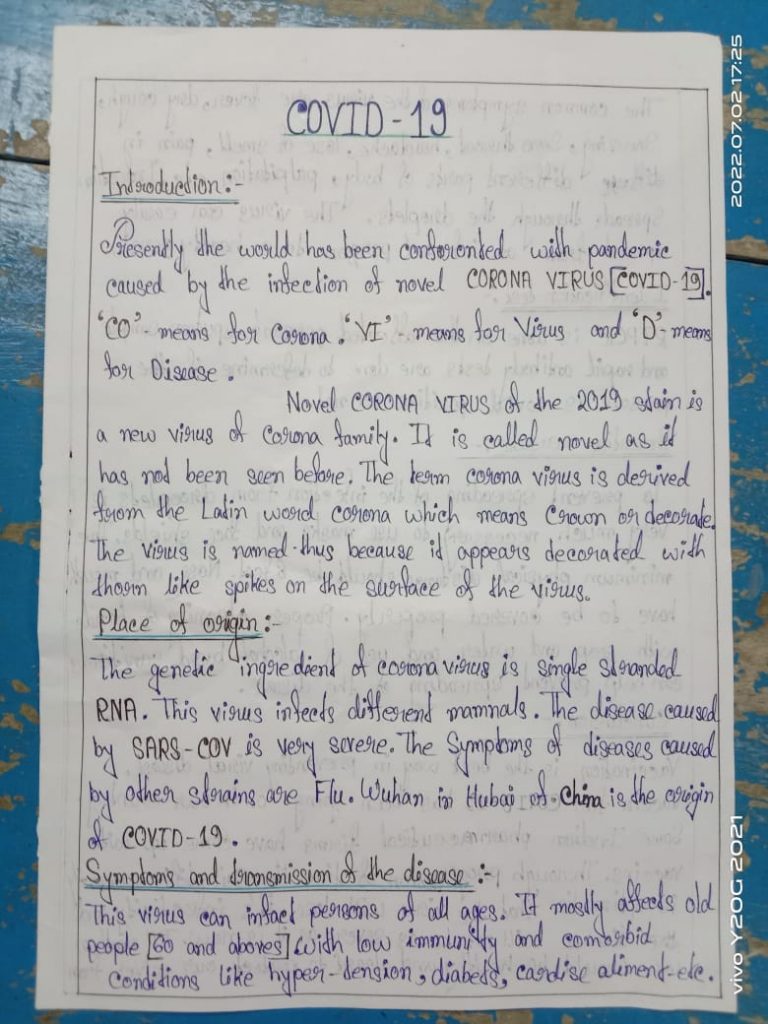 COVID-19
Introduction:-
Presently the world has been conforonted with pandemic
caused by the infection of novel CORONA VIRUS [COVID-19].
'CO'- means for Corona. 'VI'- means for Virus and 'D'- means
for Disease.
Novel CORONA VIRUS of the 2019 stain is
a new virus of Corona family. It is called novel as it
has not been seen before. The term corona virus is derived
from the Latin word corona which means Crown or decorate.
The virus is named thus because it appears decorated with
thorn like spikes on the surface of the virus.
Place of origin:-
The genetic ingredient of corona virus is single stranded
RNA. This virus infects different mamnals. The disease caused
by SARS-COV is very severe. The Symptoms of diseases caused
by other strains are Flu. Wuhan in Hubai of China is the origin
of COVID-19.
Symptoms and transmission of the disease:-
This virus can infact persons of all ages. It mostly affects old
people [60 and aboves] with low immunity and comorbid
Conditions like hyper-tension, diabets, cardise aliment-etc.
2022.07.02 17:25
vivo Y20G 2021